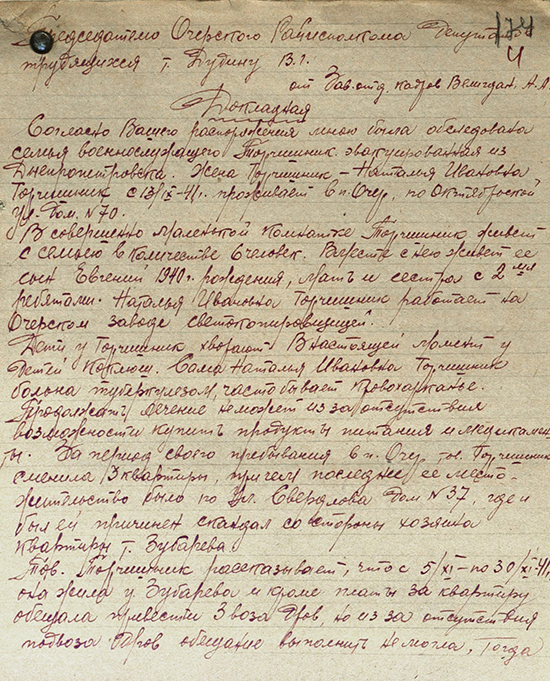 174
Председателю Очерского Райисполкома Депутатов
4
трудящихся т. Дудину В.г.
от Зав. отд. кадров А.А.
Докладная
Согласно Вашего распоряжения мною была обследована
семья военнослужащего Торчишник эвакуированная из
Днепропетровска. Жена Торчишник – Наталья Ивановна
Торчишник с 13/IX-41г. проживает в п. Очер, по Октябрьской
ул. Дом. N 70.
В совершенно маленькой комнатке Торчишник живет
с семьею в количестве 6 человек. Вместе с нею живет ее
сын Евгений 1940г. рождения, мать и сестра с 2мя
ребятами. Наталья Ивановна Торчишник работает на
Очерском заводе светокопировщицей.
Дети у Торчишник хворают. В настоящей момент у
детей коклюш. Сама Наталья Ивановна Торчишник
больна туберкулезом, часто бывает кровохарканье.
Продолжать лечение не может из за отсутствия
возможности купить продукты питания и медикамен
ты. За период своего пребывания в п. Очер тов. Торчишник
сменила 3 квартиры, причем последнее ее место-
жительство было по Ул. Свердлова Дом N 37, где и
был ей причинен скандал со стороны хозяина
квартиры т. Зубарева
Тов. Торчишник рассказывает, что с 5/XI – по 30/XI-41г
она жила у Зубарева и кроме платы за квартиру
обещала привести 3 воза дров, но из за отсутствия
подвоза дров обещание выполнить не могла, тогда